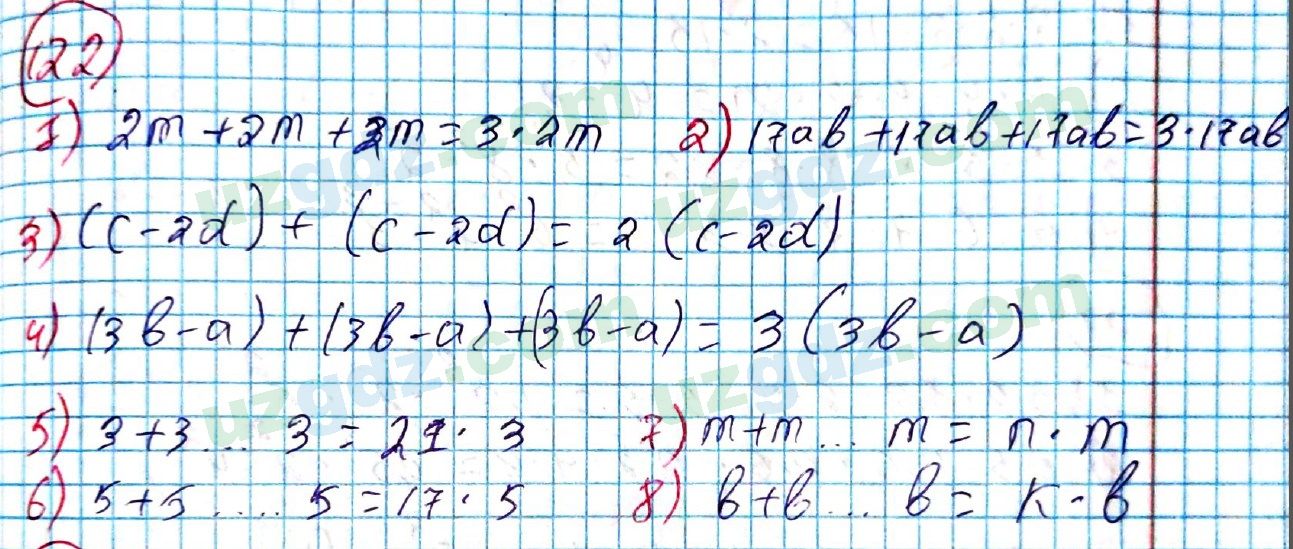 122
1) 2m+2m+2m=3·2m 2) 17ab+17ab+17ab=3·17ab
3) (c-2d)+(c-2d)=2(c-2d)
4) (3b-a)+(3b-a)+(3b-a)=3(3b-a)
5) 3+3.... 3=21·3 7) m+m... m=n·m
6) 5+5 .... 5=17·5 8) b+b... b=k·b
uzgdz.com
uzgdz.com
uzgdz.com
uzgdz.com